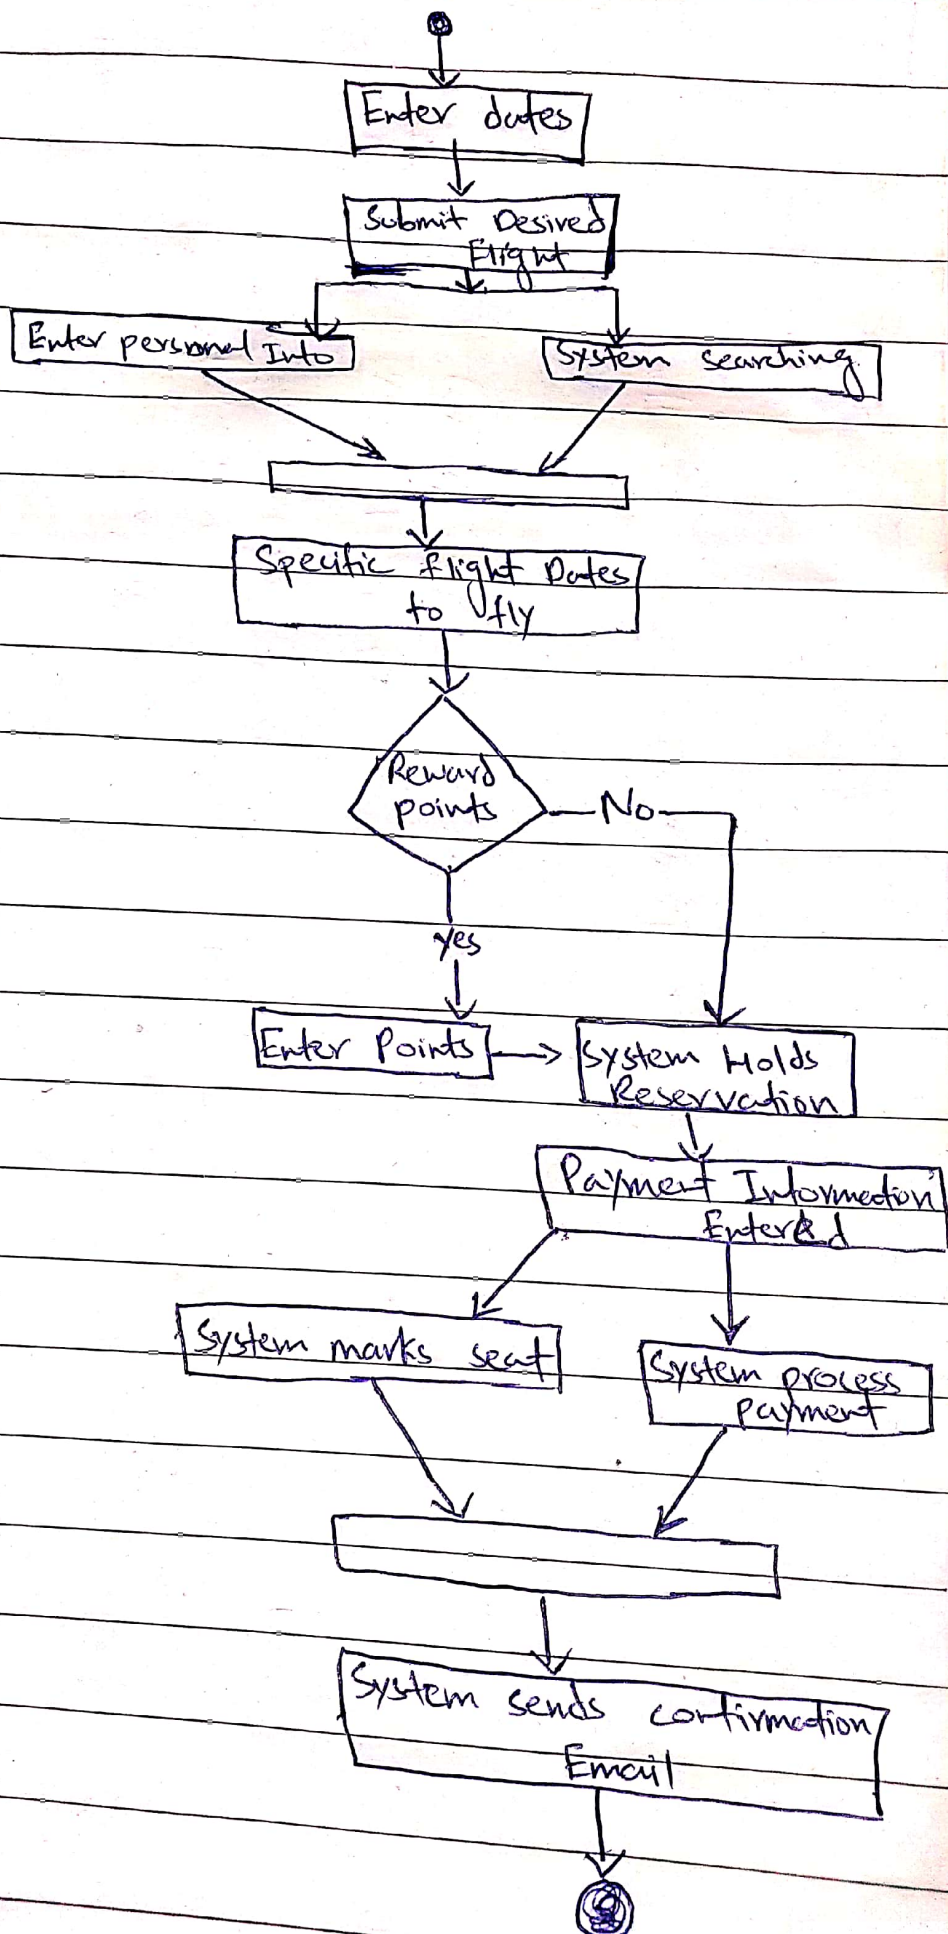 Enter dates
Submit Desired
Flight
Enter personal Info
System searching
Specific flight Dates
to fly
Reward
points
No
yes
Enter Points
System Holds
Reservation
Payment Information
Entered
System marks seat
System process
payment
System sends confirmation
Email